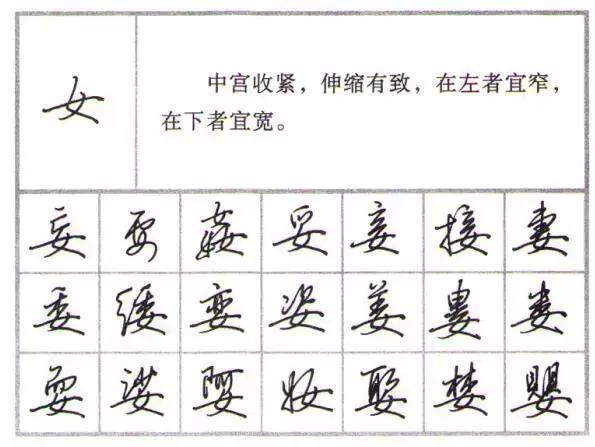 女
中宫收紧，伸缩有致，在左者宜窄，
在下者宜宽。
妄 要 姦 妥 妾 接 妻
委 娈 姿 姜 婁 娄
耍 娑 娿 妆 娶 嬰